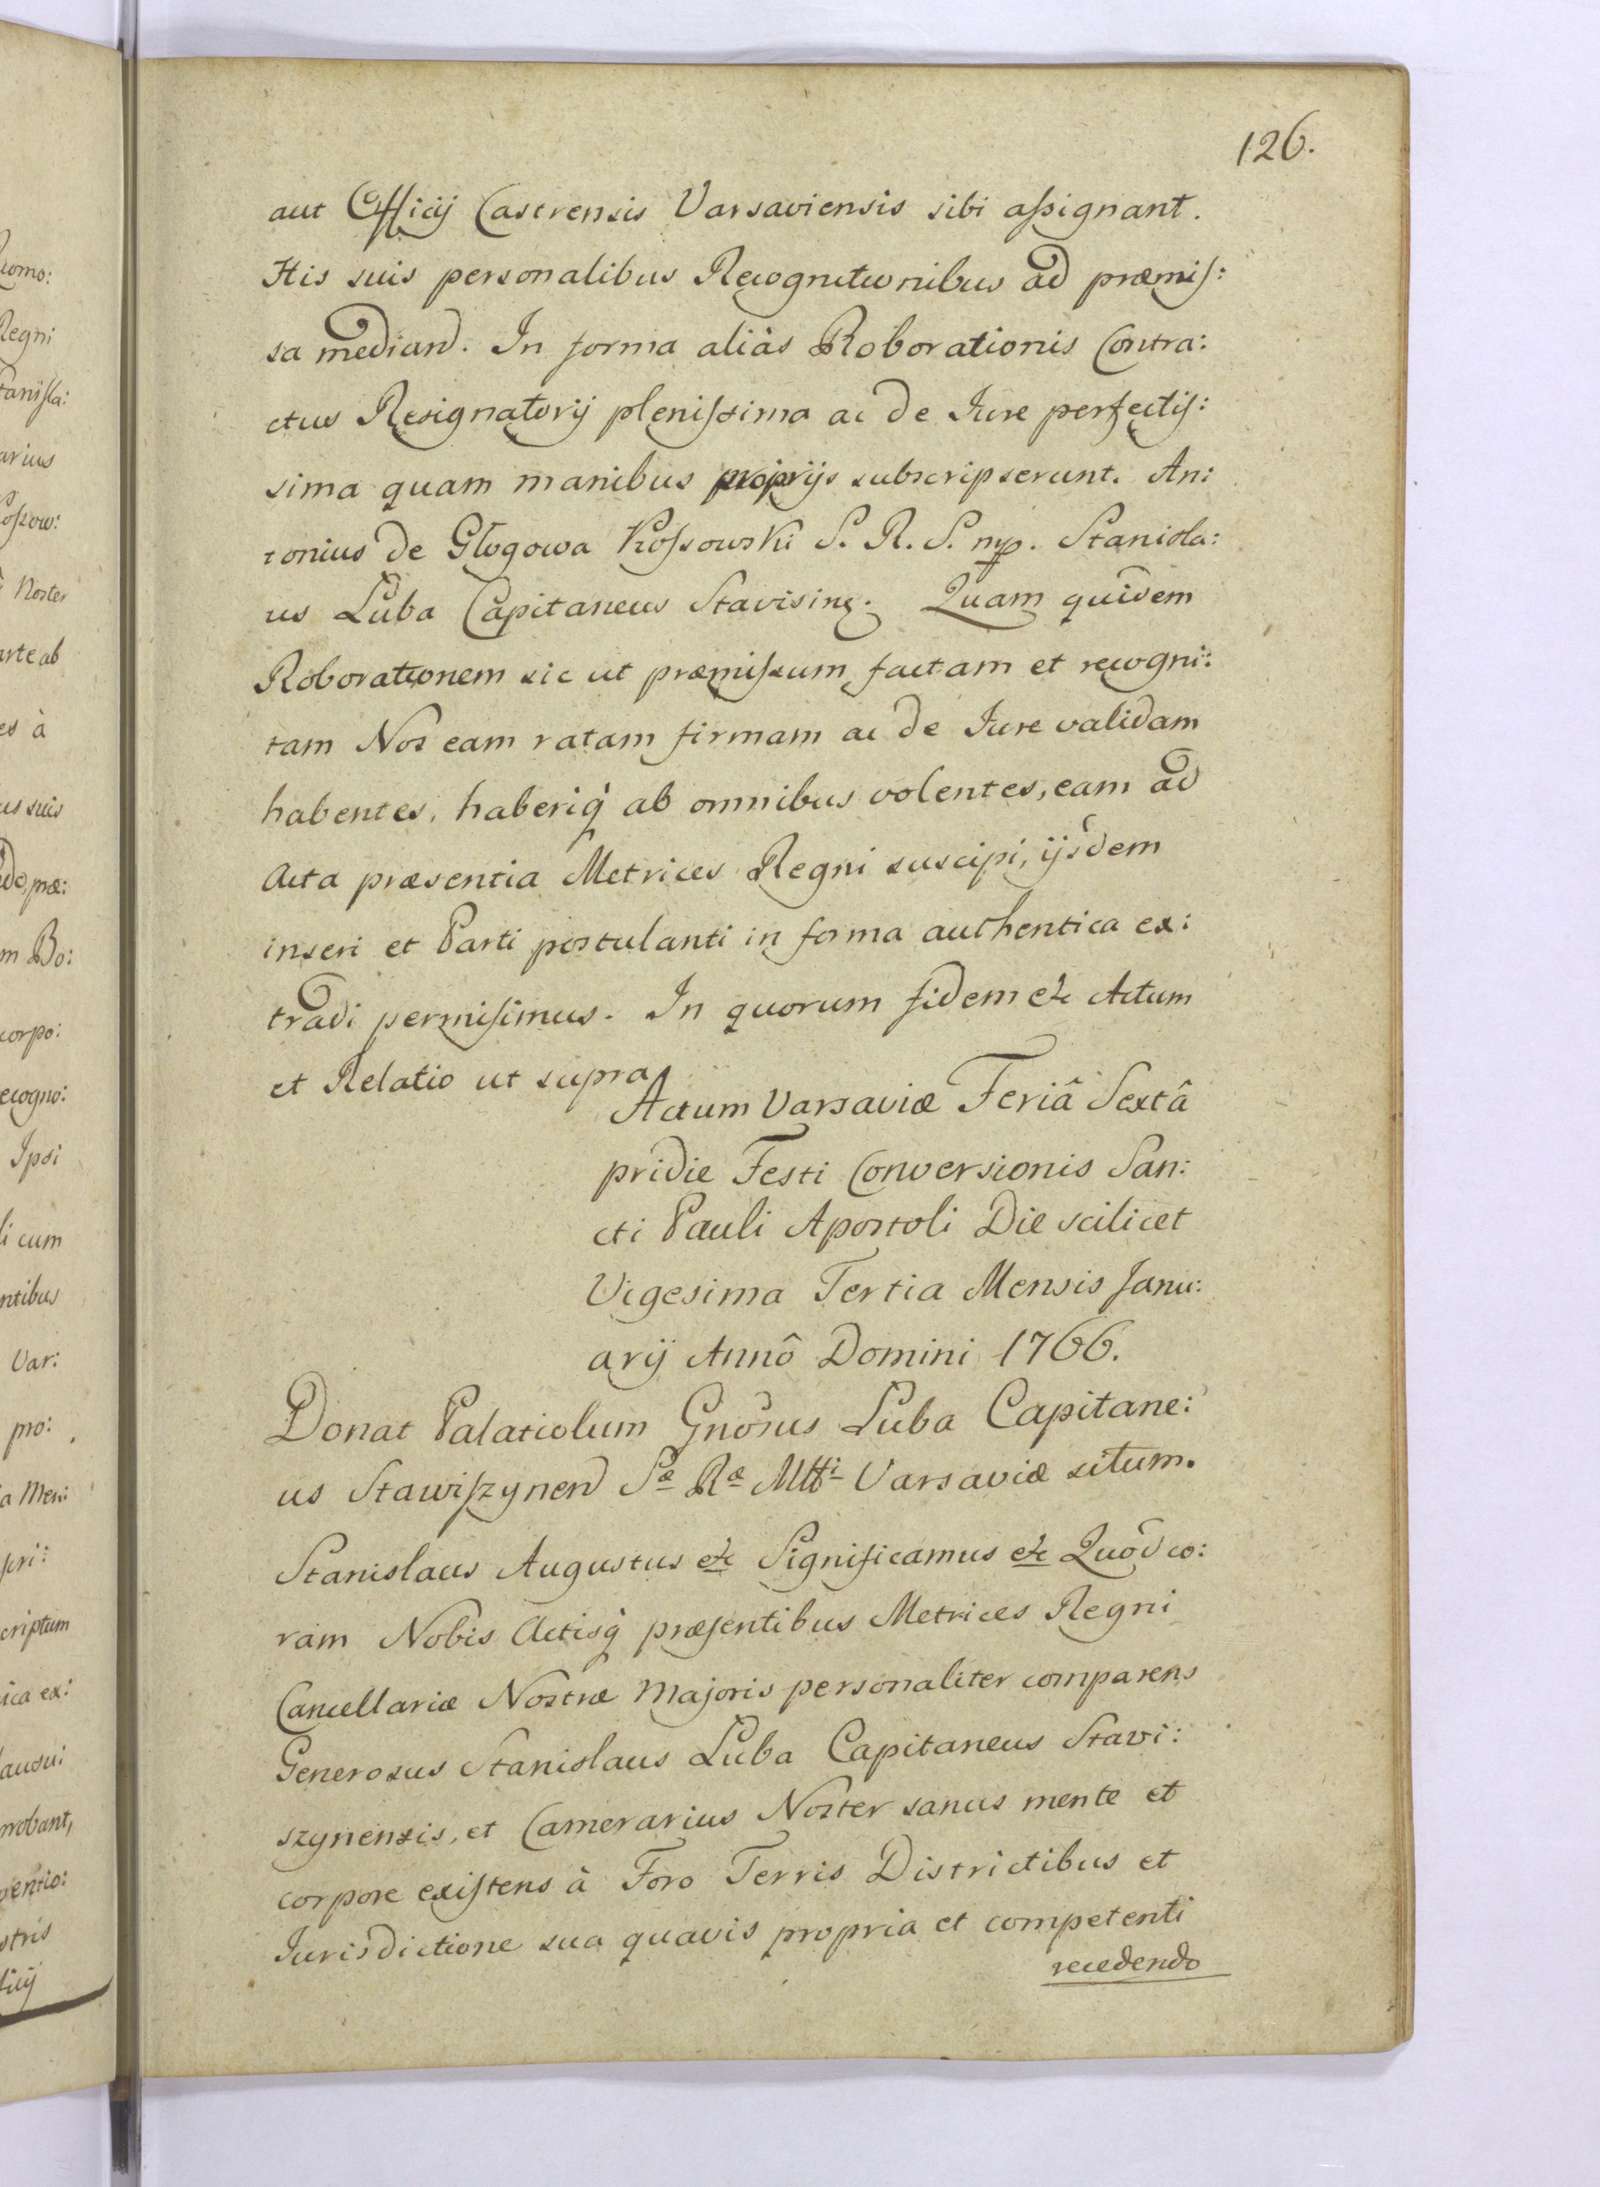 126.
aut Officij Castrensis Varsaviensis sibi aſsignant.
His suis personalibus Recognitionibus ad præmiſ:
sa mediand. In forma aliàs Roborationis Contra:
ctus Resignatorij pleniſsima ac de Iure perfectiſ:
sima quam manibus proprijs subscripserunt. An:
tonius de Głogowa Koſsowski S. R. S. mp. Stanisla:
us Luba Capitaneus Stavising. Quam quidem
Roborationem sic ut præmiſsum factam et recogni:
tam Nos eam ratam firmam ac de Iure validam
habentes, haberiq́ ab omnibus volentes, eam ad
Acta præsentia Metrices Regni suscipi, ijsdem
inseri et Parti postulanti in forma authentica ex:
tradi permiſimus. In quorum fidem etc Actum
et Relatio ut supra
Actum Varsaviæ Feriâ Sextâ
pridie Festi Conversionis San:
cti Pauli Apostoli Die scilicet
Vigesima Tertia Mensis Janu:
arij Annô Domini 1766.
Donat Palatiolum Gnosus Luba Capitane:
us Stawiſzynen Sæ Ræ Mtti Varsaviæ situm.
Stanislaus Augustus etc Significamus etc Quod co:
ram Nobis Actisq́ præſentibus Metrices Regni
Cancellariæ Nostræ Majoris personaliter comparens
Generosus Stanislaus Luba Capitaneus Stavi:
szynensis, et Camerarius Noster sanus mente et
corpore exiſtens à Foro Terris Districtibus et
Iurisdictione sua quavis propria et competenti
recedendo